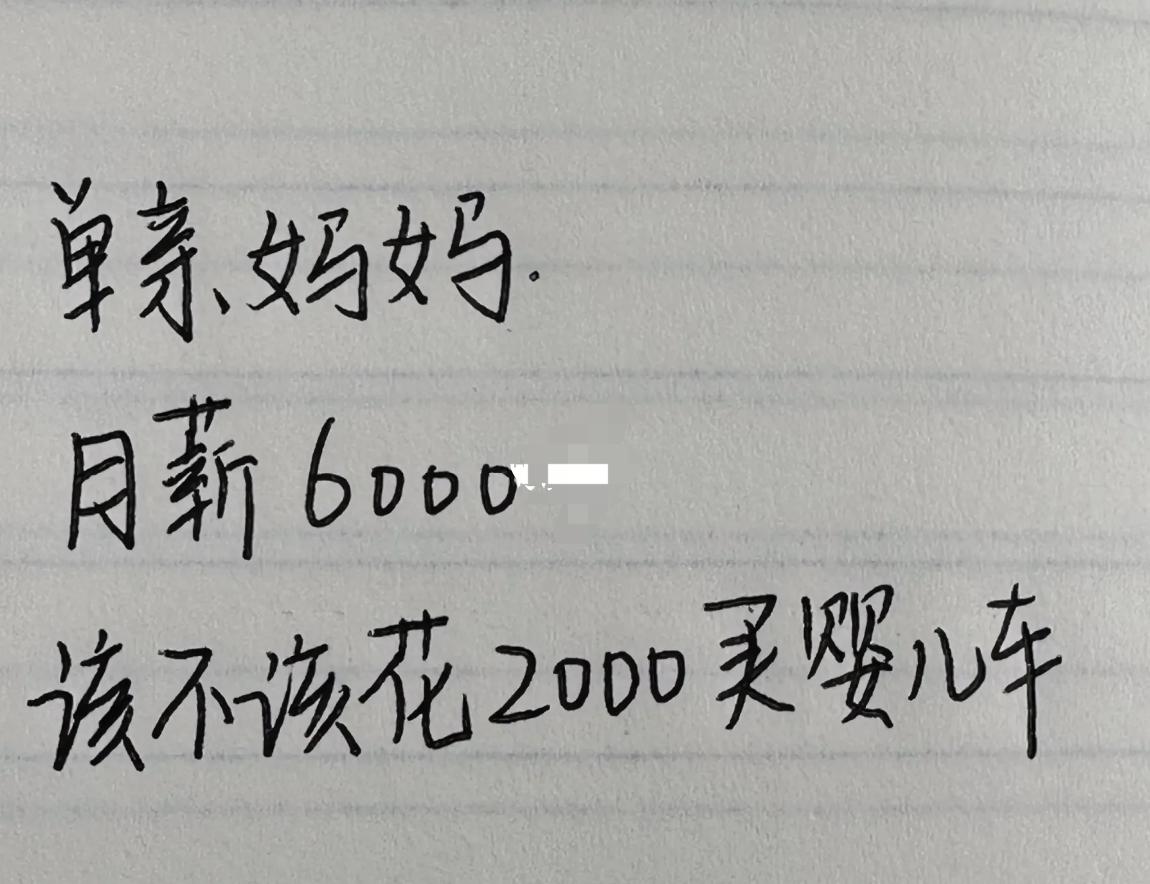 单亲妈妈.
月薪 6000
该不该花2000买婴儿车